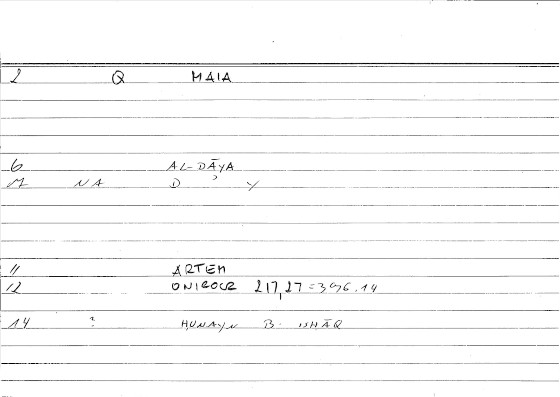 2 Q MAIA
6 AL-DĀYA
M NA D ? Y
11 ARTEM
12 ONIROCR 217,27=396.14
14 ? HUNAYN B. ISHĀQ